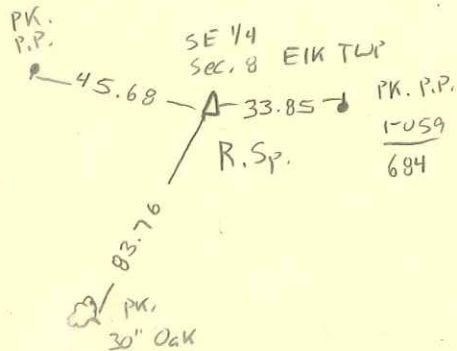 PK.
P.P.
45.68
SE 1/4
Sec. 8 Elk TWP
33.85
PK. P.P.
1-059
684
R.Sp.
83.76
PK.
30" Oak